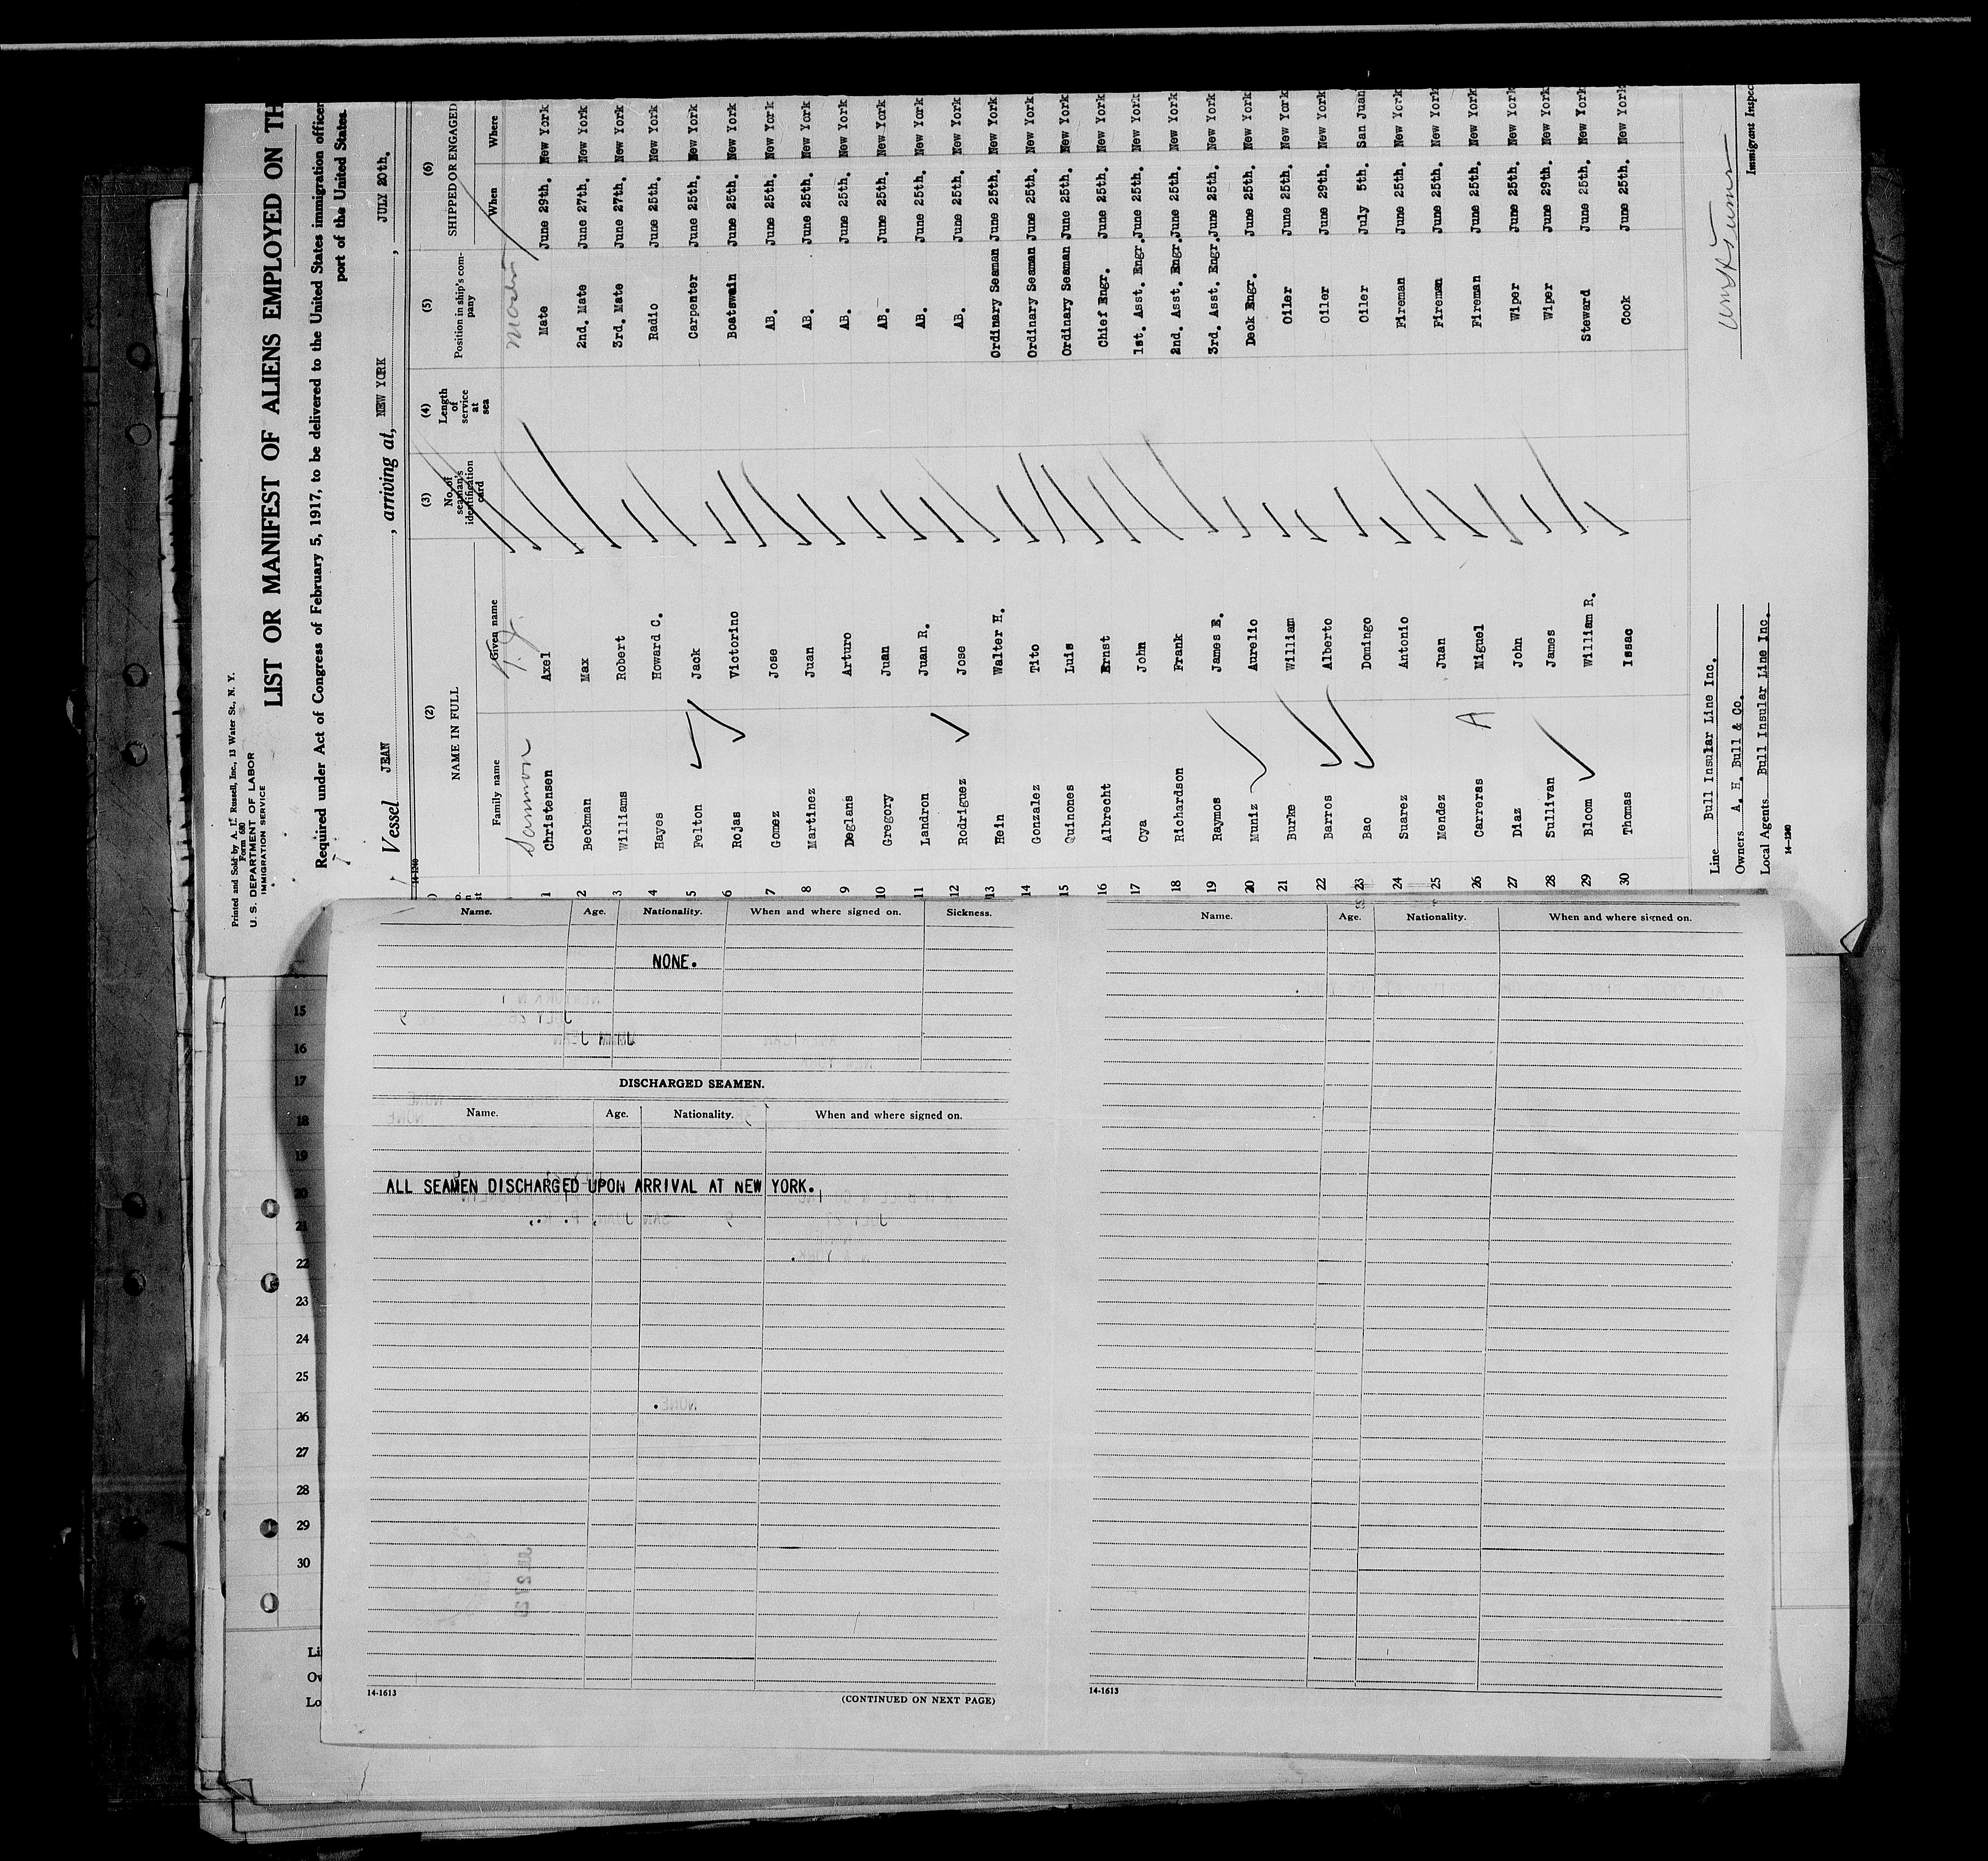 Printed and Sold by A. H. Russell, Inc., 13 Water St., N. Y.
Form 680
U. S. DEPARTMENT OF LABOR
IMMIGRATION SERVICE
LIST OR MANIFEST OF ALIENS EMPLOYED ON TH
Required under Act of Congress of February 5, 1917, to be delivered to the United States immigration officer
port of the United States.
Vessel JEAN, arriving at, NEW YORK, JULY 20th.
14-1240
(2) (3) (4) (5) (6)
NAME IN FULL No. of seaman's identification card Length of service at sea Position in ship's company SHIPPED OR ENGAGED
Family name Given name When Where
Sammon T. J. Master
1 Christensen Axel Mate June 29th. New York
2 Beckman Max 2nd. Mate June 27th. New York
3 Williams Robert 3rd. Mate June 27th. New York
4 Hayes Howard C. Radio June 25th. New York
5 Felton Jack Carpenter June 25th. New York
6 Rojas Victorino Boatswain June 25th. New York
7 Gomez Jose AB. June 25th. New York
8 Martinez Juan AB. June 25th. New York
9 Deglans Arturo AB. June 25th. New York
10 Gregory Juan AB. June 25th. New York
11 Landron Juan R. AB. June 25th. New York
12 Rodriguez Jose AB. June 25th. New York
13 Hein Walter H. Ordinary Seaman June 25th. New York
14 Gonzalez Tito Ordinary Seaman June 25th. New York
15 Quinones Luis Ordinary Seaman June 25th. New York
16 Albrecht Ernst Chief Engr. June 255th. New York
17 Cya John 1st. Asst. Engr. June 25th. New York
18 Richardson Frank 2nd. Asst. Engr. June 25th. New York
19 Raymos James E. 3rd. Asst. Engr. June 25th. New York
20 Muniz Aurelio Deck Engr. June 25th. New York
21 Burke William Oiler June 25th. New York
22 Barros Alberto Oiler June 29th. New York
23 Bao Domingo Oiler July 5th. San Juan
24 Suarez Antonio Fireman June 25th. New York
25 Mendez Juan Fireman June 25th. New York
26 Carreras Miguel Fireman June 25th. New York
27 Diaz John Wiper June 25th. New York
28 Sullivan James Wiper June 29th. New York
29 Bloom William R. Steward June 25th. New York
30 Thomas Issac Cook June 25th. New York
Line Bull Insular Line Inc.
Owners A. H. Bull & Co.
Local Agents Bull Insular Line Inc.
14-1240
Immigrant Inspec
Name. Age. Nationality. When and where signed on. Sickness.
NONE.
DISCHARGED SEAMEN.
Name. Age. Nationality. When and where signed on.
ALL SEAMEN DISCHARGED UPON ARRIVAL AT NEW YORK.
14-1613
(CONTINUED ON NEXT PAGE)
Name. Age. Nationality. When and where signed on.
14-1613
15
16
17
18
19
20
21
22
23
24
25
26
27
28
29
30
Li
Ov
Lo